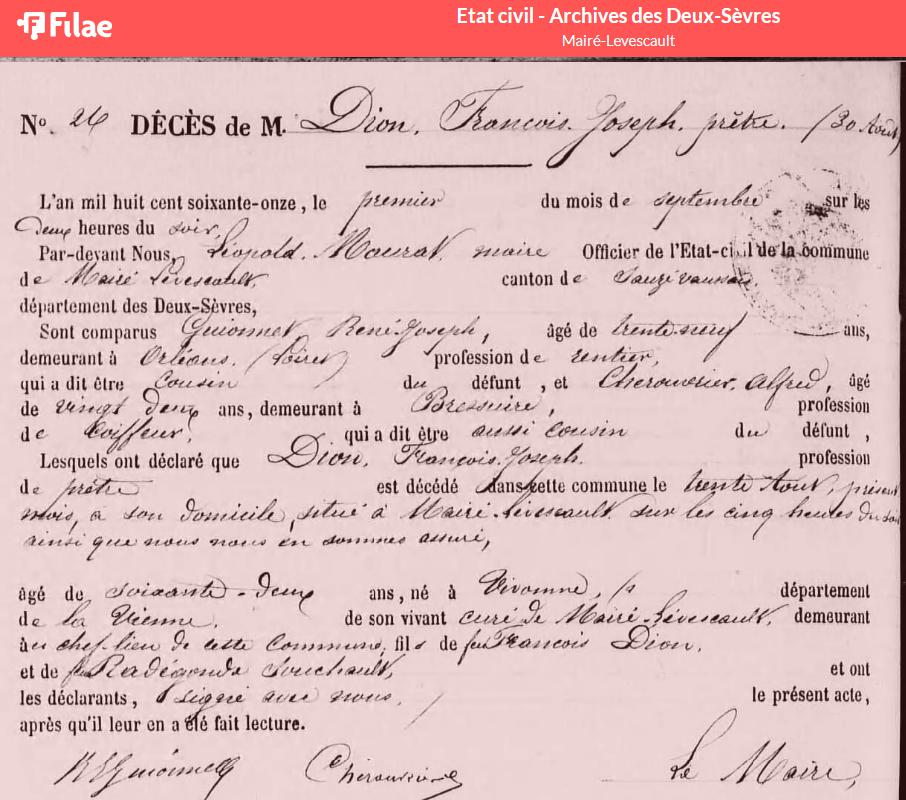 Filae
Etat civil - Archives des Deux-Sèvres
Mairé-Levescault
No. 26 DÉCÈS de M. Dion, François Joseph, prêtre. (30 Août)
L'an mil huit cent soixante-onze, le premier du mois de septembre sur les
deux heures du soir,
Par-devant Nous, Léopold Maurat, maire Officier de l'Etat-civil de la commune
de Mairé Lévescault, canton de Sauzé vaussais,
département des Deux-Sèvres,
Sont comparus Guionnet René Joseph, âgé de trente-neuf ans,
demeurant à Orléans, (Loiret) profession de rentier,
qui a dit être cousin du défunt, et Cherouvrier, Alfred, âgé
de vingt deux ans, demeurant à Bressuire, profession
de Coiffeur, qui a dit être aussi cousin du défunt,
Lesquels ont déclaré que Dion, François Joseph. profession
de prêtre est décédé dans cette commune le trente Août, présent
mois, à son domicile, situé à Mairé-Lévescault sur les cinq heures du soir
ainsi que nous nous en sommes assuré,
âgé de soixante-deux ans, né à Vivonne, département
de la Vienne, de son vivant curé de Mairé-Lévescault, demeurant
au chef-lieu de cette commune, fils de feu François Dion,
et de feu Radégonde Souchault, et ont
les déclarants, signé avec nous, le présent acte,
après qu'il leur en a été fait lecture.
Le Maire,